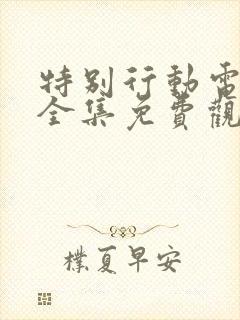 特別行動電
全集免費觀
樸夏早安